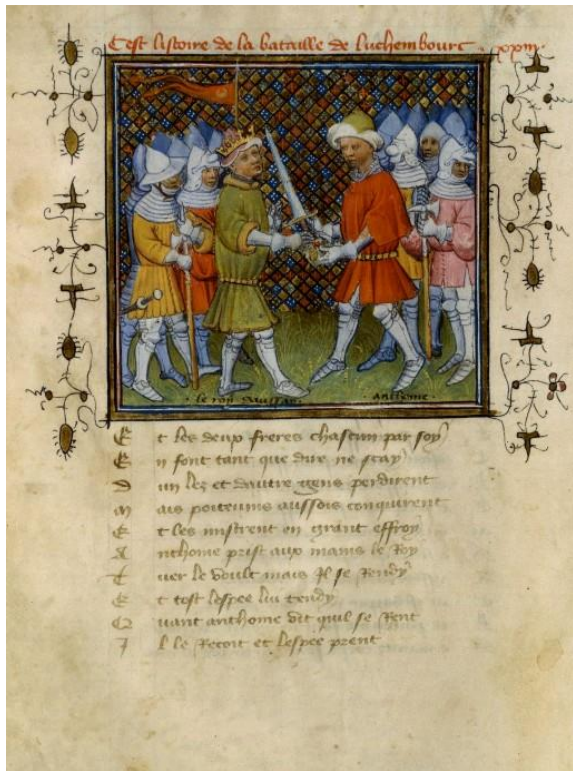 Cest listoire de la bataille de luchembourc . xxiij.
le roy daussay . anthoine .
E t les deux freres chascun par soy
E n font tant que dire ne scay
D un lez et dautre gens perdirent
M ais poiteuins aussois conquirent
E t les mistrent en grant effroy
A nthoine prist aux mains le Roy
T uer le voult mais Il se Rendy
E t tost lespee lui tendy
Q uant anthoine vit quil se Rent
I l le Recoit et lespee prent